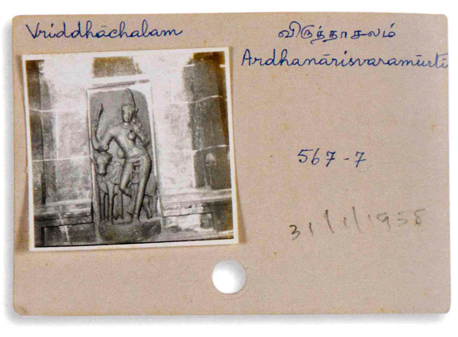 Vriddhāchalam
விருத்தாசலம்
Ardhanārisvaramūrti
567-7
31/1/1958